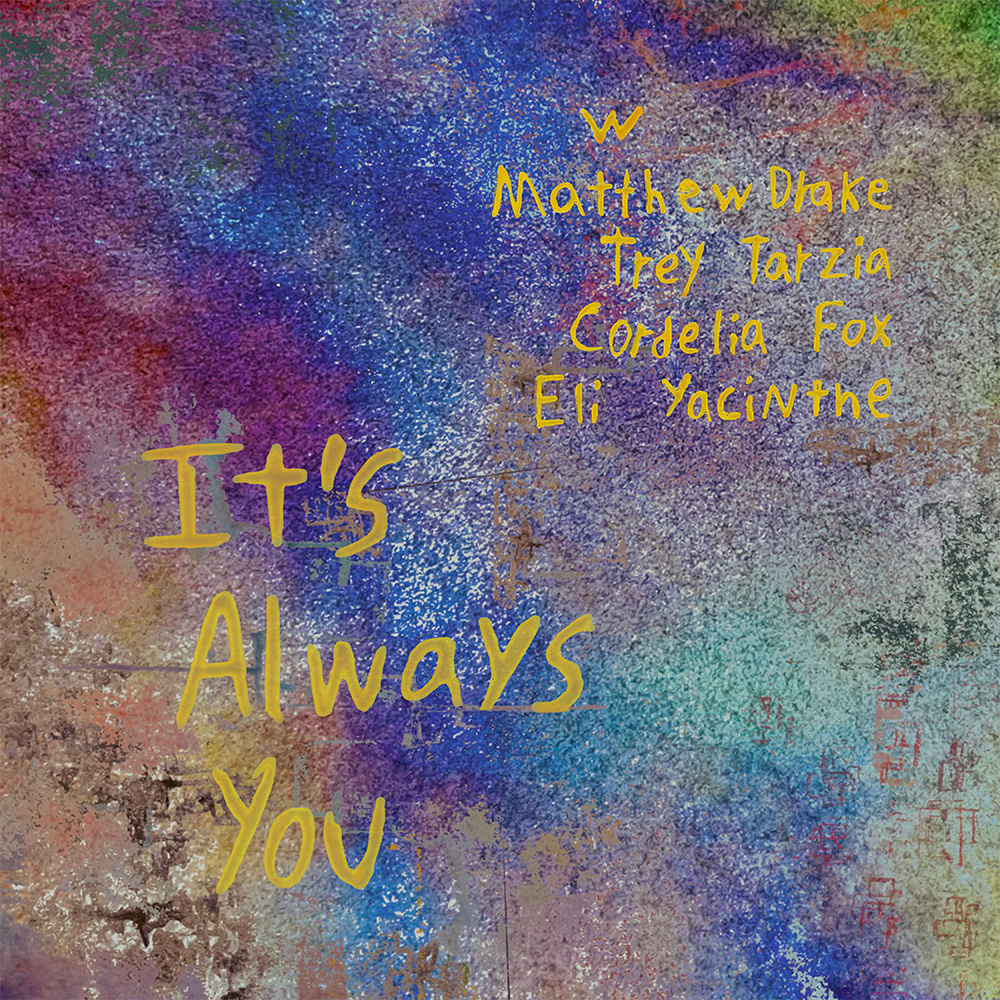 W
Matthew Drake
Trey Tarzia
Cordelia Fox
Eli Yacinthe
It's
Always
You